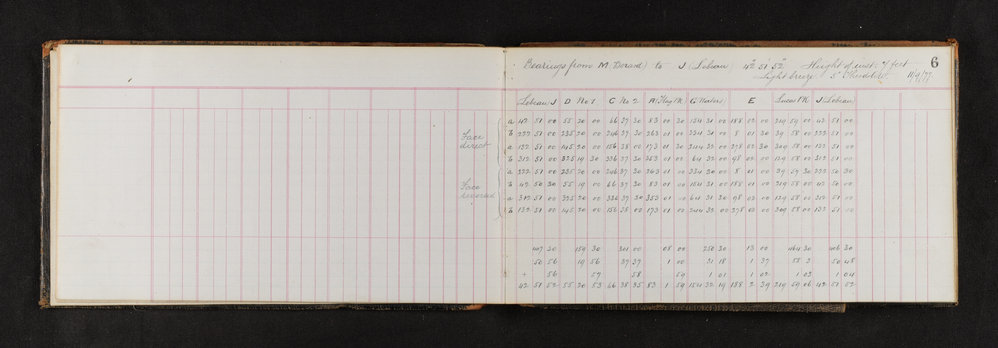 6
Bearings from M (Dorand) to J (Lebrau) 42° 51' 52" Height of inst. 4 feet
Light breeze
Lebrau J D No 1 C No 2 A (Flag) M G E Lucas J Lebrau
a 42 51 00 55 20 00 66 37 30 83 01 30 154 31 00 188 02 00 219 59 00 42 51 00
b 222 51 00 235 20 00 246 37 30 263 01 00 334 31 00 8 01 30 39 58 00 222 51 00
Face direct
a 132 51 00 145 20 00 156 38 00 173 01 30 244 32 00 278 02 30 309 58 00 132 51 00
b 312 51 00 325 19 30 336 37 30 353 01 00 64 32 00 98 02 00 129 58 00 312 51 00
a 222 51 00 235 20 00 246 37 30 263 01 00 334 30 00 8 01 00 39 57 30 222 50 30
Face reversed
b 42 50 30 55 19 00 66 37 30 83 01 00 154 31 00 188 01 00 219 58 00 42 50 00
a 312 51 00 325 20 00 336 37 30 353 01 00 64 31 30 98 02 00 129 58 00 312 51 00
b 132 51 00 145 20 00 156 38 00 173 01 00 244 32 00 278 02 00 309 58 00 132 51 00
407 30 159 30 301 00 08 00 250 30 13 00 464 30 406 30
50 56 19 56 37 37 1 00 31 18 1 37 58 3 50 48
+ 56 57 58 59 1 01 1 02 1 03 1 04
42 51 52 55 20 53 66 38 35 83 1 59 154 32 19 188 2 39 219 59 06 42 51 52